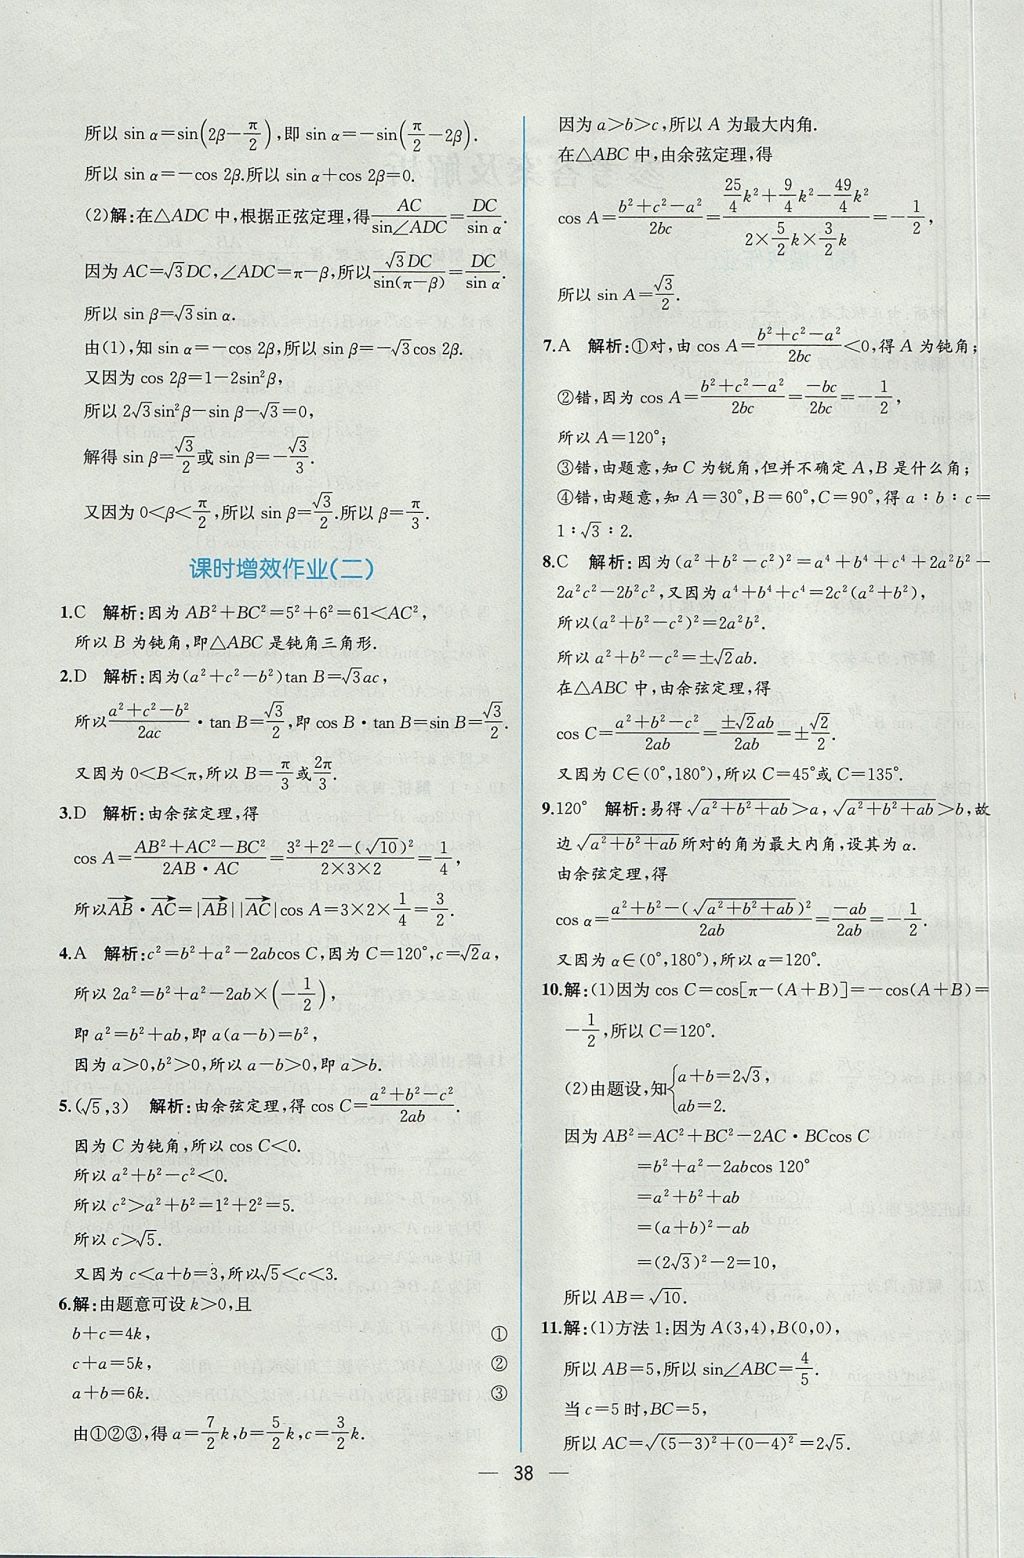 所以 sin α=sin(2β-π/2),即 sin α=-sin(π/2-2β).
所以 sin α=-cos 2β.所以 sin α+cos 2β=0.
(2)解:在△ADC 中,根据正弦定理,得AC/sin∠ADC=DC/sin α.
因为 AC=√3DC,∠ADC=π-β,所以√3DC/sin(π-β)=DC/sin α.
所以 sin β=√3sin α.
由(1),知 sin α=-cos 2β,所以 sin β=-√3cos 2β.
又因为 cos 2β=1-2sin²β,
所以 2√3sin²β-sin β-√3=0,
解得 sin β=√3/2或 sin β=-√3/3.
又因为 0<β<π/2,所以 sin β=√3/2.所以 β=π/3.
课时增效作业(二)
1.C 解析:因为 AB²+BC²=5²+6²=61<AC²,
所以 B 为钝角,即△ABC 是钝角三角形.
2.D 解析:因为(a²+c²-b²)tan B=√3ac,
所以(a²+c²-b²)/2ac·tan B=√3/2,即 cos B·tan B=sin B=√3/2.
又因为 0<B<π,所以 B=π/3或2π/3.
3.D 解析:由余弦定理,得
cos A=(AB²+AC²-BC²)/(2AB·AC)=(3²+2²-(√10)²)/(2×3×2)=1/4,
所以AB→·AC→=|AB→||AC→|cos A=3×2×1/4=3/2.
4.A 解析:c²=b²+a²-2abcos C,因为 C=120°,c=√2a,
所以 2a²=b²+a²-2ab×(-1/2),
即 a²=b²+ab,即 a(a-b)=b²,
因为 a>0,b²>0,所以 a-b>0,即 a>b.
5.(√5,3) 解析:由余弦定理,得 cos C=(a²+b²-c²)/2ab.
因为 C 为钝角,所以 cos C<0.
所以 a²+b²-c²<0.
所以 c²>a²+b²=1²+2²=5.
所以 c>√5.
又因为 c<a+b=3,所以√5<c<3.
6.解:由题意可设 k>0,且
b+c=4k, ①
c+a=5k, ②
a+b=6k. ③
由①②③,得 a=7/2k,b=5/2k,c=3/2k.
因为 a>b>c,所以 A 为最大内角.
在△ABC 中,由余弦定理,得
cos A=(b²+c²-a²)/2bc=(25/4k²+9/4k²-49/4k²)/(2×5/2k×3/2k)=-1/2,
所以 sin A=√3/2.
7.A 解析:①对,由 cos A=(b²+c²-a²)/2bc<0,得 A 为钝角;
②错,因为 cos A=(b²+c²-a²)/2bc=-bc/2bc=-1/2,
所以 A=120°;
③错,由题意,知 C 为锐角,但并不确定 A,B 是什么角;
④错,由题意,知 A=30°,B=60°,C=90°,得 a∶b∶c=
1∶√3∶2.
8.C 解析:因为(a²+b²-c²)²=a⁴+b⁴+c⁴+2a²b²-
2a²c²-2b²c²,又因为 a⁴+b⁴+c⁴=2c²(a²+b²),
所以(a²+b²-c²)²=2a²b².
所以 a²+b²-c²=±√2ab.
在△ABC 中,由余弦定理,得
cos C=(a²+b²-c²)/2ab=±√2ab/2ab=±√2/2.
又因为 C∈(0°,180°),所以 C=45°或 C=135°.
9.120° 解析:易得√(a²+b²+ab)>a,√(a²+b²+ab)>b,故
边√(a²+b²+ab)所对的角为最大内角,设其为 α.
由余弦定理,得
cos α=(a²+b²-(√(a²+b²+ab))²)/2ab=-ab/2ab=-1/2.
又因为 α∈(0°,180°),所以 α=120°.
10.解:(1)因为 cos C=cos[π-(A+B)]=-cos(A+B)=
-1/2,所以 C=120°.
(2)由题设,知{a+b=2√3,
ab=2.
因为 AB²=AC²+BC²-2AC·BCcos C
=b²+a²-2abcos 120°
=a²+b²+ab
=(a+b)²-ab
=(2√3)²-2=10,
所以 AB=√10.
11.解:(1)方法 1:因为 A(3,4),B(0,0),
所以 AB=5,所以 sin∠ABC=4/5.
当 c=5 时,BC=5,
所以 AC=√((5-3)²+(0-4)²)=2√5.
— 38 —